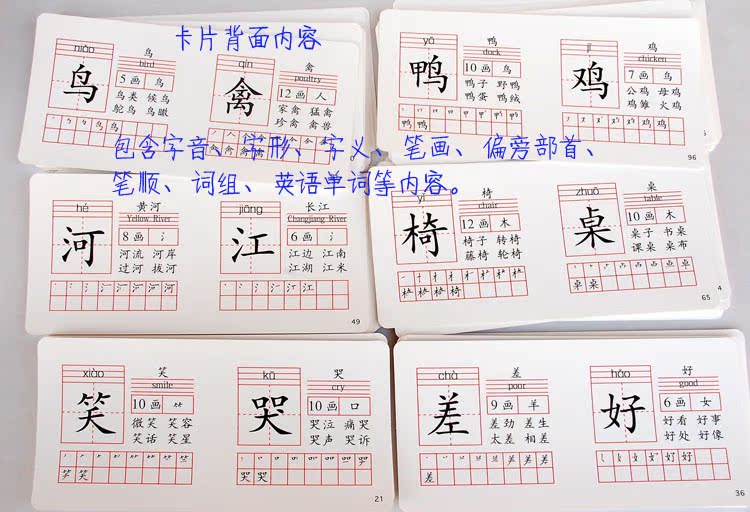 卡片背面内容
包含字音、字形、字义、笔画、偏旁部首、
笔顺、词组、英语单词等内容。
niǎo
鸟
鸟
bird
5 画 鸟
鸟类 候鸟
鸵鸟 鸟瞰
qín
禽
禽
poultry
12 画 人
家禽 猛禽
珍禽 禽兽
yā
鸭
鸭
duck
10 画 鸟
鸭子 野鸭
鸭蛋 鸭绒
鸭 鸭
jī
鸡
鸡
chicken
7 画 鸟
公鸡 母鸡
鸡雏 火鸡
96
hé
河
黄河
Yellow River
8 画 氵
河流 河岸
过河 拔河
jiāng
江
长江
Changjiang River
6 画 氵
江边 江南
江湖 江米
49
yǐ
椅
椅
chair
12 画 木
椅子 转椅
藤椅 轮椅
zhuō
桌
桌
table
10 画 木
桌子 书桌
课桌 桌布
65
4
xiào
笑
笑
smile
10 画 ⺮
微笑 笑容
笑话 笑星
kū
哭
哭
cry
10 画 口
哭泣 痛哭
哭声 哭诉
21
chà
差
差
poor
9 画 羊
差劲 差生
太差 相差
hǎo
好
好
good
6 画 女
好看 好事
好处 好像
36